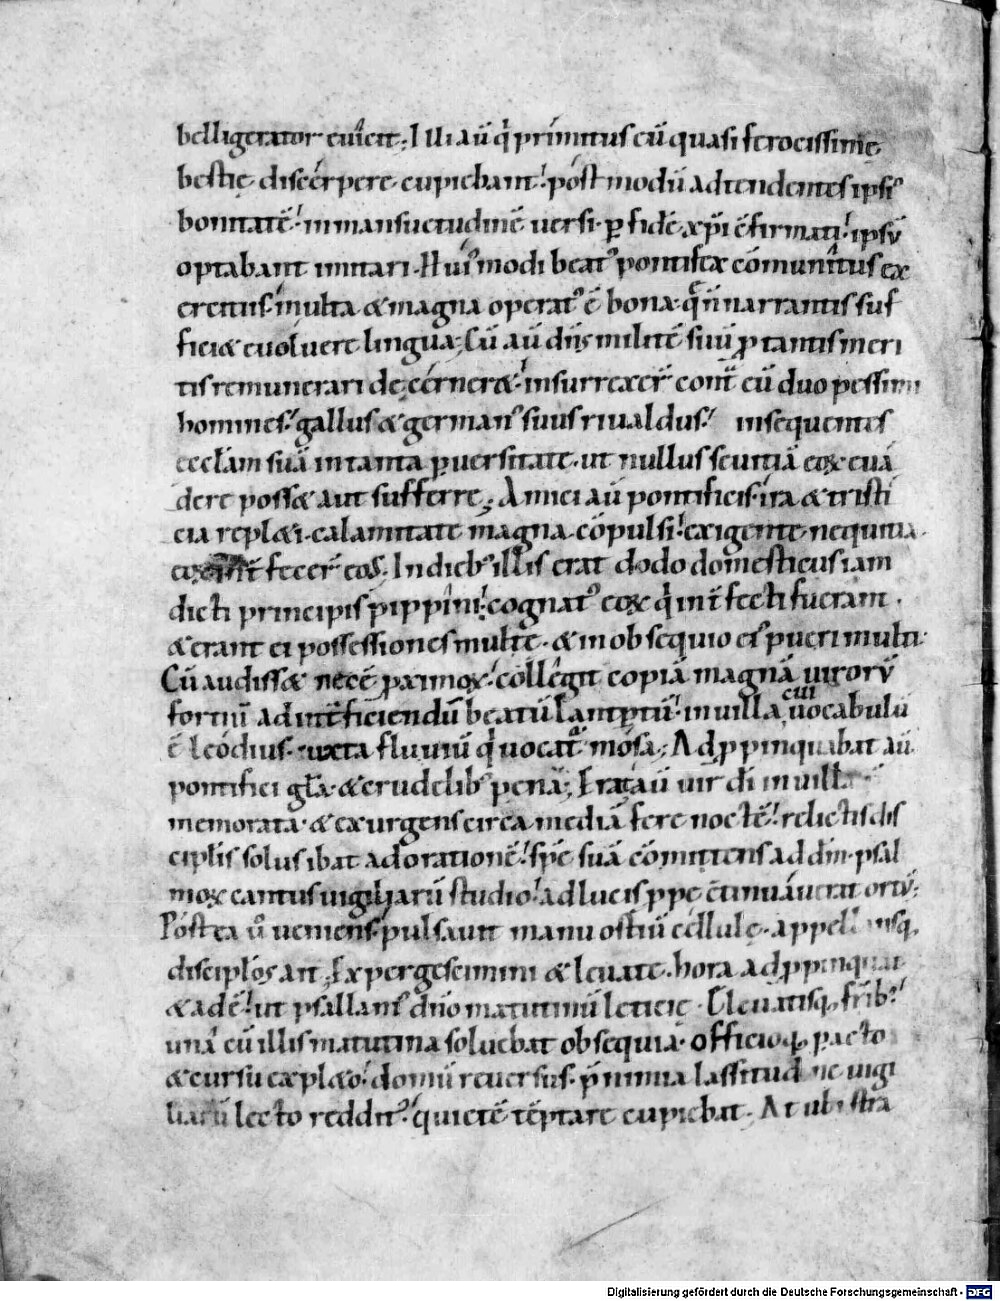 belligerator euicit; Illi aū q̇ primitus eū quasi ferocissime
bestię discerpere cupiebant! postmodū adtendentes ipsi᾽
bonitatē! in mansuetudinē uersi· ꝑ fidē xp̄i c̄firmati! ipsū
optabant imitari· Hui᾽modi beat᾽ pontifex cōmunitus ex
ercitus! multa & magna operat᾽ ē bona· q̄ n̄ narrantis suf
fici& euoluere lingua; Cū aū dn̄s militē suū ꝓ tantis meri
tis remunerari decerner&! insurrexer̄ cont̄ eū duo pessimi
homines! gallus & german᾽ suus riualdus! insequentes
eccl̄am suā in tanta ꝑuersitate· ut nullus seuitiā eoꝝ eua
dere poss& aut sufferre; Amici aū pontificis· ira & tristi
cia repl&i· calamitate magna cōpulsi! exigente nequitia
eoꝝ int̄fecer̄ eos. In dieb᾽ illis erat dodo domesticus iam
dicti principis pippini! cognat᾽ eoꝝ q̇ int̄fecti fuerant·
& erant ei possessiones multę· & in obsequio ei᾽ pueri multi·
Cū audiss& necē ꝓximoꝝ! collegit copiā magnā uirorū
fortiū ad int̄ficiendū beatū lantꝑtū! in uilla cui uocabulū
ē leodius· iuxta fluuiū q̇ uocat᷑ mosa; Adꝓpinquabat aū
pontifici gl̄a· & crudelib᾽ pena; Erat aū uir dī in uilla
memorata· & exurgens circa mediā fere noctē! relictis dis
ciplis solus ibat ad orationē! spē suā cōmittens ad dm̄· psal
moꝝ cantus uigiliarū studio! ad lucis ꝓpe c̄tinuauerat ortū;
Postea u᾽ ueniens! pulsauit manu ostiū cellulę· appellansq,
discipl̄os ait; Expergescimini & leuate· hora adꝓpinquat
& adē! ut psallam᾽ dn̄o matutinū leticię· Eleuatisq, fr̄ib᾽!
unā cū illis matutina soluebat obsequia· officioq, ꝑacto
& cursu expl&o! domū reuersus· p̄ nimia lassitudine uigi
liarū lecto reddit᾽! quietē tēptare cupiebat· At ubi stra
Digitalisierung gefördert durch die Deutsche Forschungsgemeinschaft - DFG